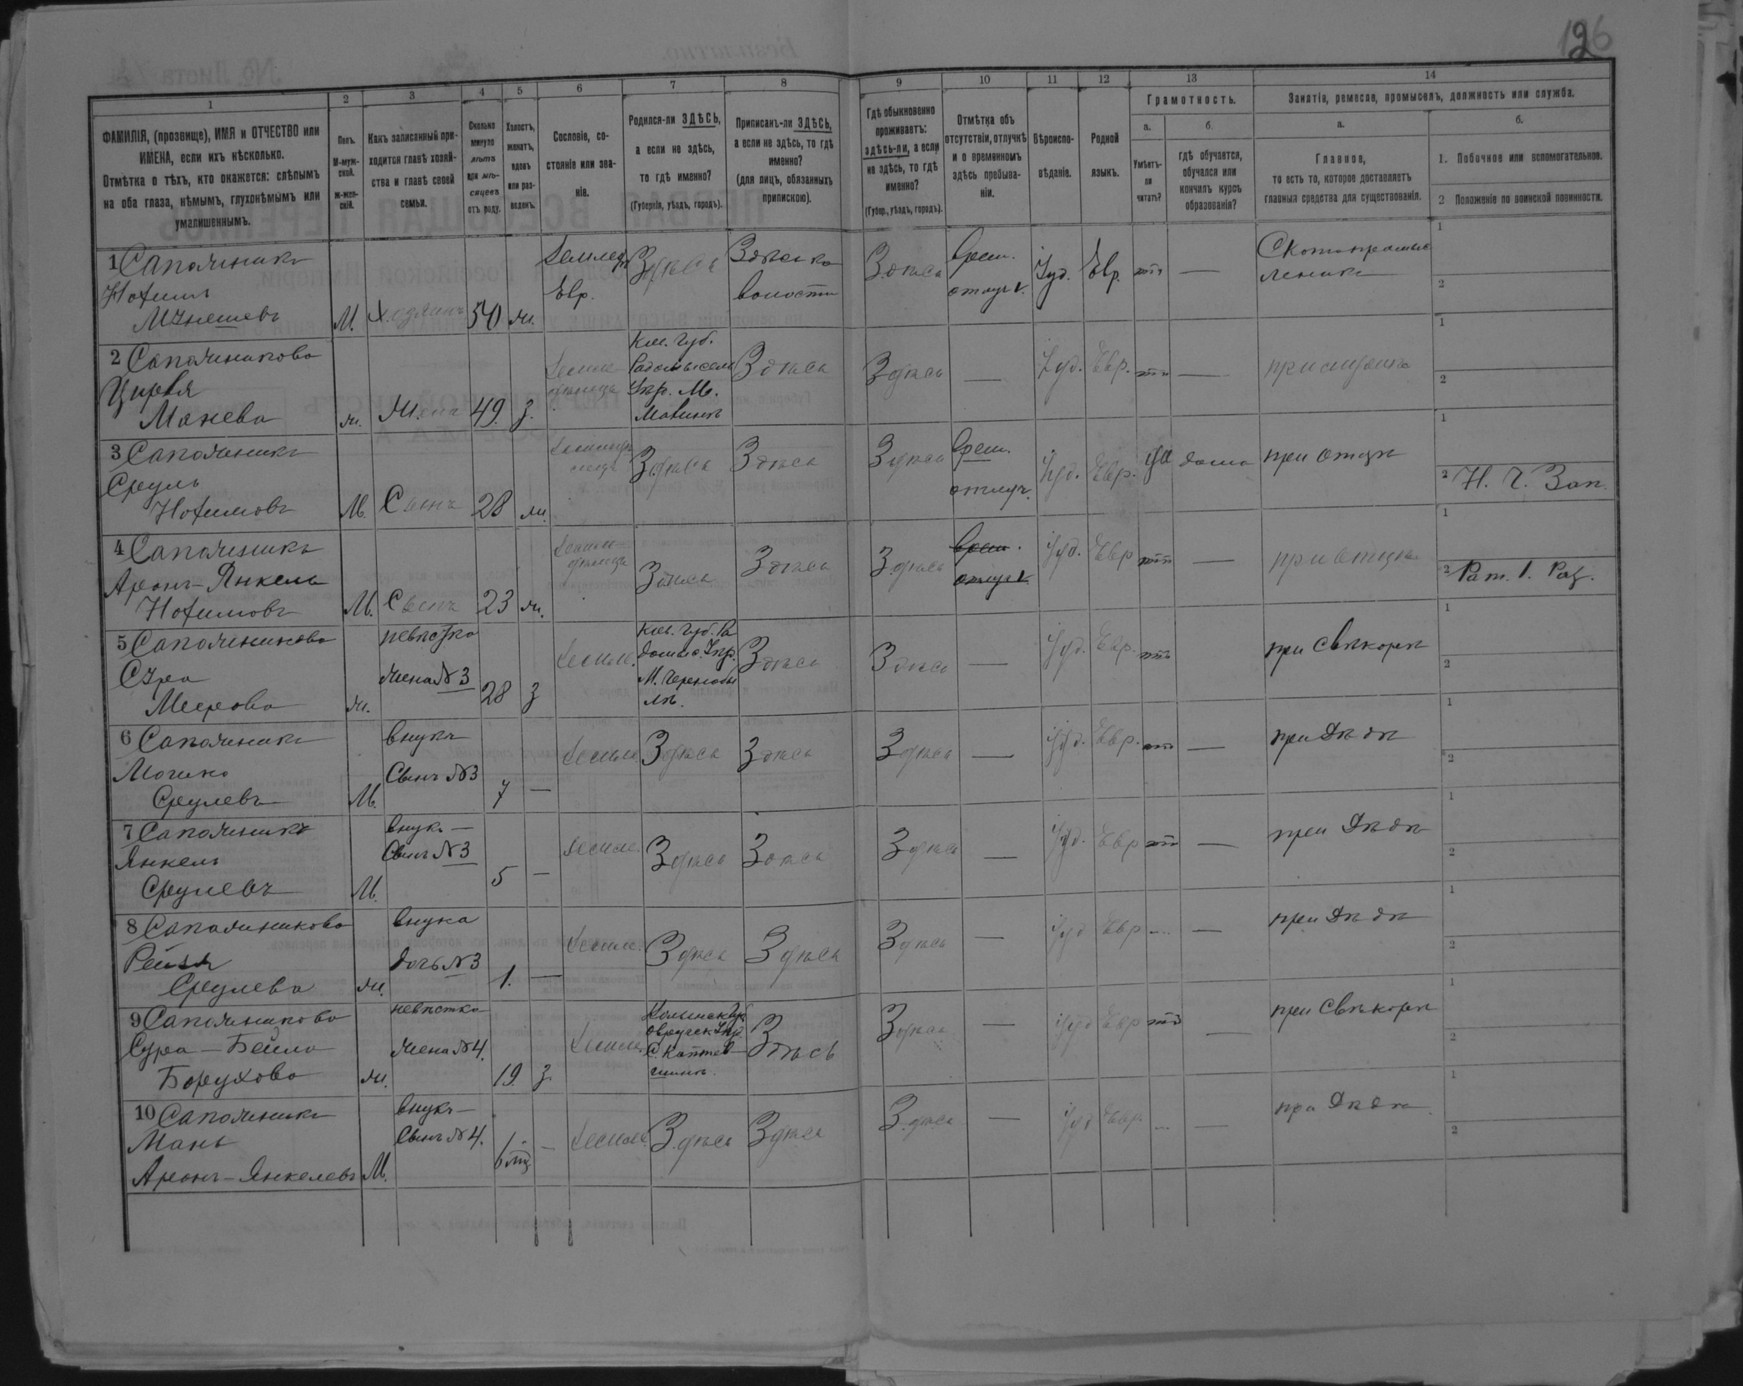 126
1
2
3
4
5
6
7
8
9
10
11
12
13
14
ФАМИЛІЯ, (прозвище), ИМЯ и ОТЧЕСТВО или ИМЕНА, если ихъ нѣсколько.
Отмѣтка о тѣхъ, кто окажется: слѣпымъ на оба глаза, нѣмымъ, глухонѣмымъ или умалишеннымъ.
Полъ.
М-муж-
ской.
ж-жен-
скій.
Какъ записанный при-
ходится главѣ хозяй-
ства и главѣ своей
семьи.
Сколько
минуло
лѣтъ
или мѣ-
сяцевъ
отъ роду.
Холостъ,
женатъ,
вдовъ
или раз-
веденъ.
Сословіе, со-
стояніе или зва-
ніе.
Родился-ли ЗДѢСЬ,
а если не здѣсь,
то гдѣ именно?
(Губернія, уѣздъ, городъ).
Приписанъ-ли ЗДѢСЬ,
а если не здѣсь, то гдѣ
именно?
(для лицъ, обязанныхъ
припискою).
Гдѣ обыкновенно
проживаетъ:
здѣсь-ли, а если
не здѣсь, то гдѣ
именно?
(Губер., уѣздъ, городъ).
Отмѣтка объ
отсутствіи, отлучкѣ
и о временномъ
здѣсь пребыва-
ніи.
Вѣроиспо-
вѣданіе.
Родной
языкъ.
Грамотность.
а.
Умѣетъ-
ли
читать?
б.
гдѣ обучается,
обучался или
кончилъ курсъ
образованія?
Занятіе, ремесло, промыселъ, должность или служба.
а.
Главное,
то есть то, которое доставляетъ
главныя средства для существованія.
б.
1. Побочное или вспомогательное.
2 Положеніе по воинской повинности.
1 Сапожникъ
Нохимъ
М. Ходзинъ 50 ж.
Евр.
Здѣсь
волости
Здѣсь
Врем.
Іуд. Евр. нѣт —
2 Сапожникова
Цирля
Манева
ж. Жена 49. З.
Кіев. Губ.
Здѣсь Здѣсь — Іуд. Евр. нѣт —
3 Сапожникъ
Сруль
Нохимовъ
М. Сынъ 28 ж.
Здѣсь Здѣсь Здѣсь
Врем.
отлуч.
Іуд. Евр. да дома при отцѣ
2 Н. Ч. Зап.
4 Сапожникъ
Аронъ-Янкель
Нохимовъ
М. Сынъ 23 ж.
Здѣсь Здѣсь Здѣсь
Врем.
Іуд. Евр нѣт — при отцѣ
5 Сапожникова
Сура
Меерова
ж.
невѣстка
жена № 3
28 З
Кіев. Губ. Ра
домыс. Уѣз.
М. Чернобы
ль.
Здѣсь Здѣсь — Іуд. Евр. нѣт при свѣкорѣ
6 Сапожникъ
Мошко
Срулевъ
М.
внукъ
Сынъ № 3
7 —
Здѣсь Здѣсь Здѣсь — Іуд. Евр. нѣт — при дѣдѣ
7 Сапожникъ
Янкель
Срулевъ
М.
внукъ —
Сынъ № 3
5 —
Здѣсь Здѣсь Здѣсь — Іуд. Евр нѣт — при дѣдѣ
8 Сапожникова
Рейзя
Срулева
ж.
внука
дочь № 3
1. —
Здѣсь Здѣсь Здѣсь — Іуд Евр — при дѣдѣ
9 Сапожникова
Сура-Бейла
Борухова
ж.
невѣстка
жена № 4.
19 З.
Волынск. Губ.
Овручск. Уѣз
Здѣсь Здѣсь — Іуд Евр нѣт — при свѣкорѣ
10 Сапожникъ
Мань
Аронъ-Янкелевъ М.
внукъ —
Сынъ № 4.
Здѣсь Здѣсь Здѣсь — Іуд Евр — при дѣдѣ